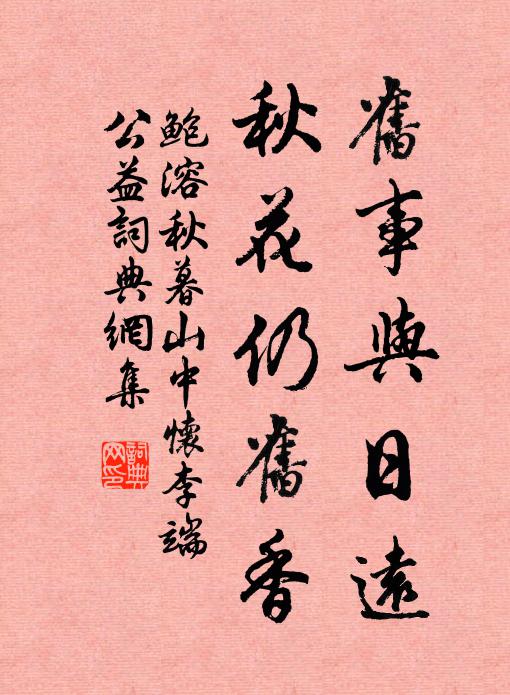 舊事與日遠
秋花仍舊香
鮑溶秋暮山中懷李端
公益詞典網集
詞典
网印